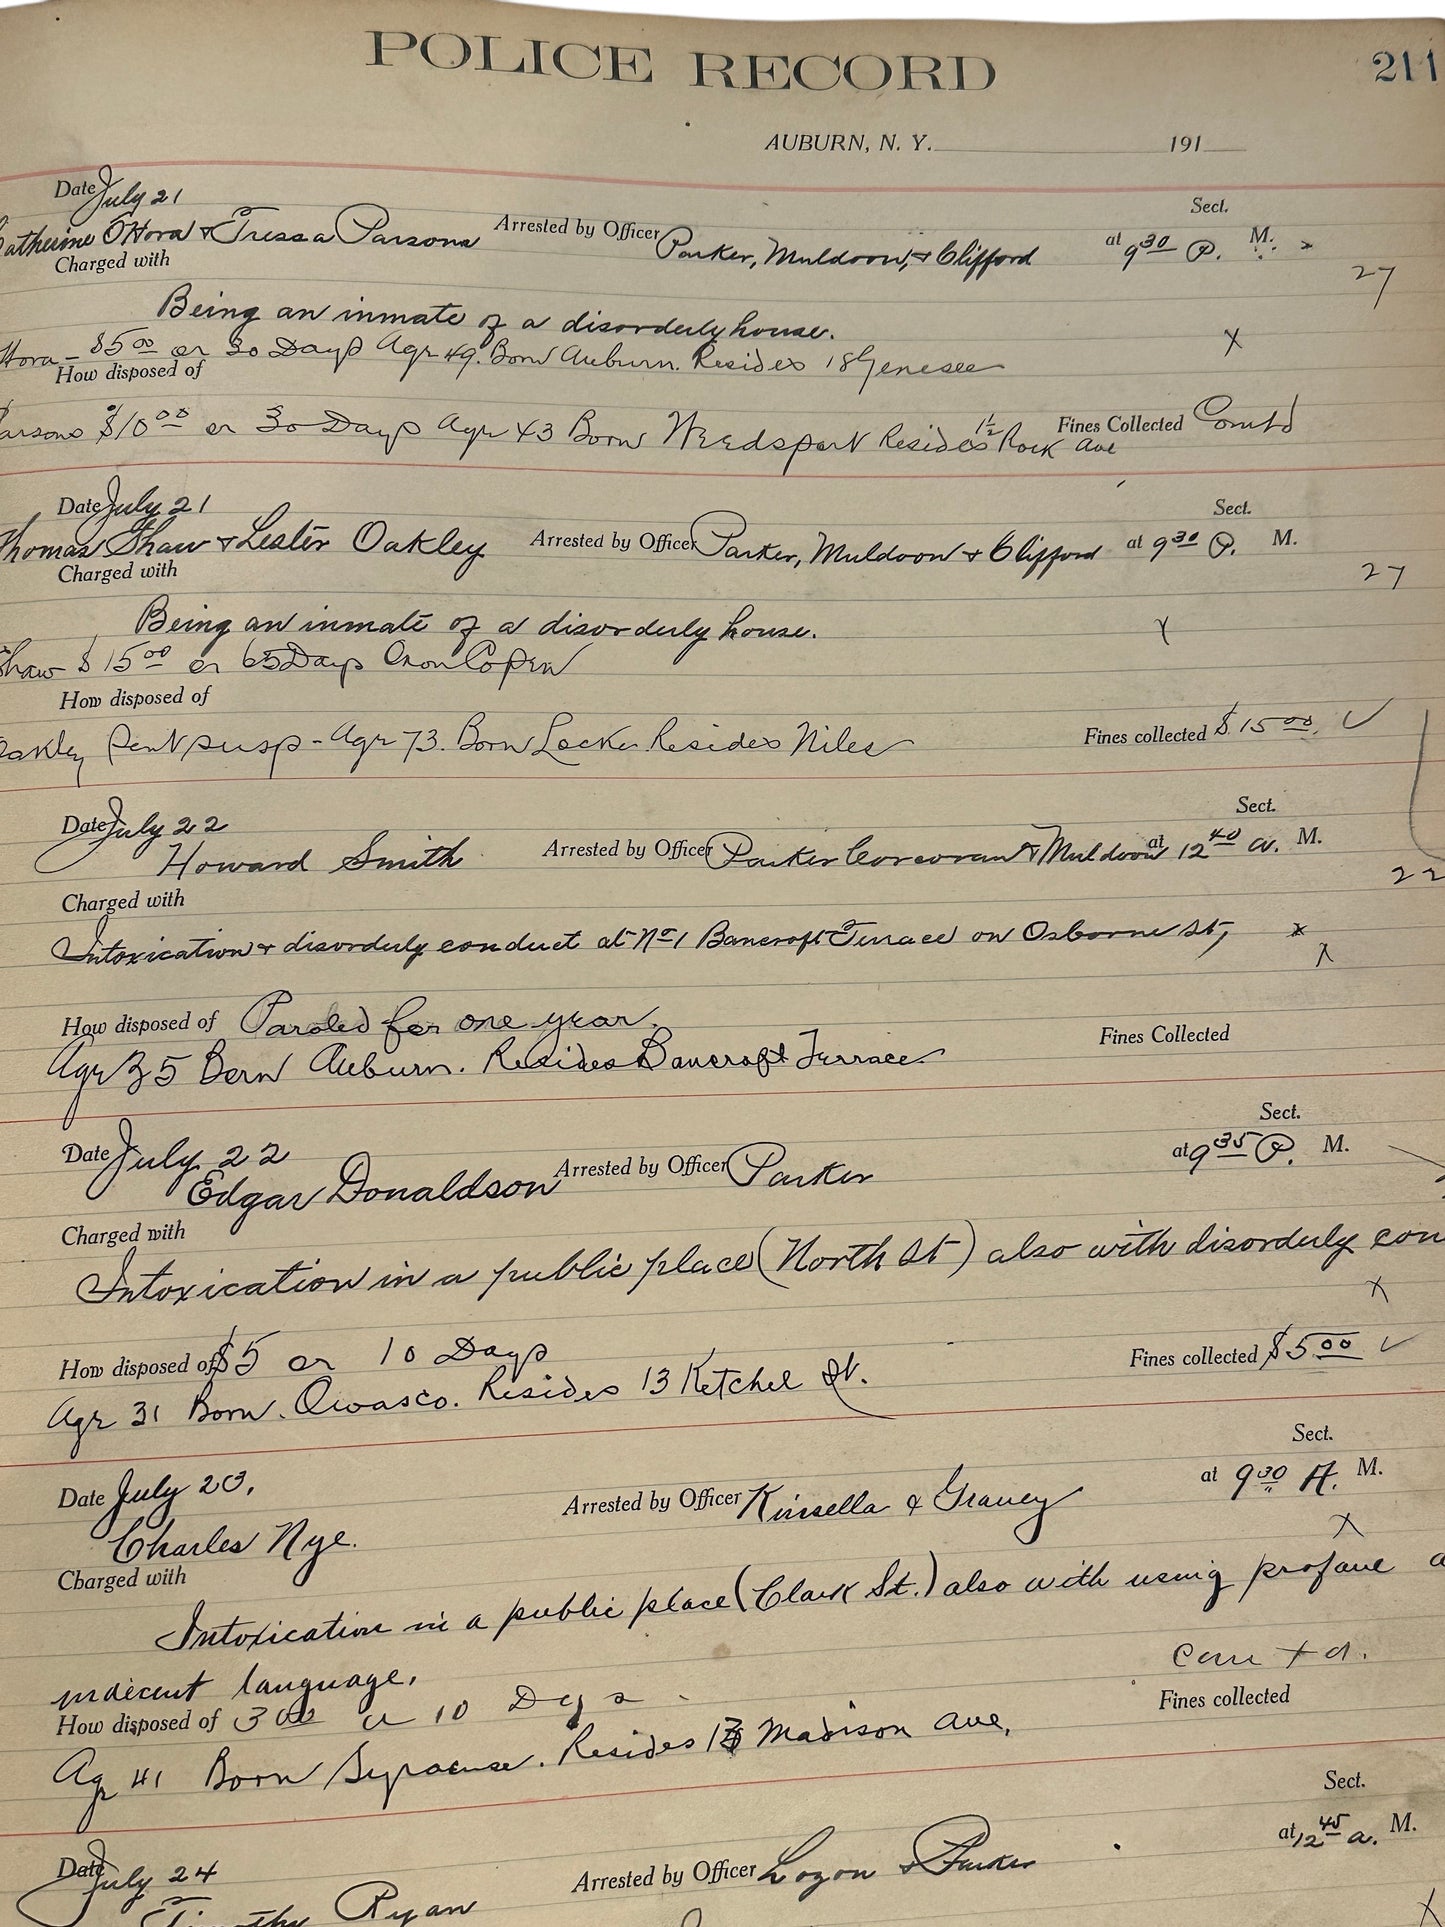 POLICE RECORD 211
AUBURN, N. Y. 191
Date July 21 Sect.
Catherine O'Hora & Tressa Parsons Arrested by Officer Parker, Muldoon, & Clifford at 9 30 P. M.
Charged with 27
Being an inmate of a disorderly house. x
Hora - $5 00 or 30 Days Age 49. Born Auburn. Resides 18 Genesee
How disposed of
Parsons $10 00 or 30 Days Age 43 Born Weedsport Resides 1/2 Rock Ave Fines Collected Comtd
Date July 21 Sect.
Thomas Shaw & Lester Oakley Arrested by Officer Parker, Muldoon & Clifford at 9 30 P. M.
Charged with 27
Being an inmate of a disorderly house. x
Shaw $15 00 or 65 Days Onon Co pen
How disposed of
Oakley Sent susp - Age 73. Born Locke Resides Niles Fines collected $15 00.
Date July 22 Sect.
Howard Smith Arrested by Officer Parker Corcoran & Muldoon at 12 40 a. M.
Charged with 22
Intoxication & disorderly conduct at No 1 Bancroft Terrace on Osborne St, x
x
How disposed of Paroled for one year.
Age 35 Born Auburn. Resides Bancroft Terrace Fines Collected
Date July 22 Sect.
Edgar Donaldson Arrested by Officer Parker at 9 35 P. M.
Charged with
Intoxication in a public place (North St) also with disorderly con
x
How disposed of $5 or 10 Days Fines collected $5 00
Age 31 Born. Owasco. Resides 13 Ketchel St.
Date July 23, Sect.
Charles Nye. Arrested by Officer Kinsella & Graney at 9 30 A. M.
Charged with x
Intoxication in a public place (Clark St.) also with using profane a
indecent language.
How disposed of 3 00 or 10 Dys Fines collected
Age 41 Born Syracuse. Resides Madison Ave,
Date July 24 Sect.
Timothy Ryan Arrested by Officer Logon & Parker at 12 45 a. M.
x